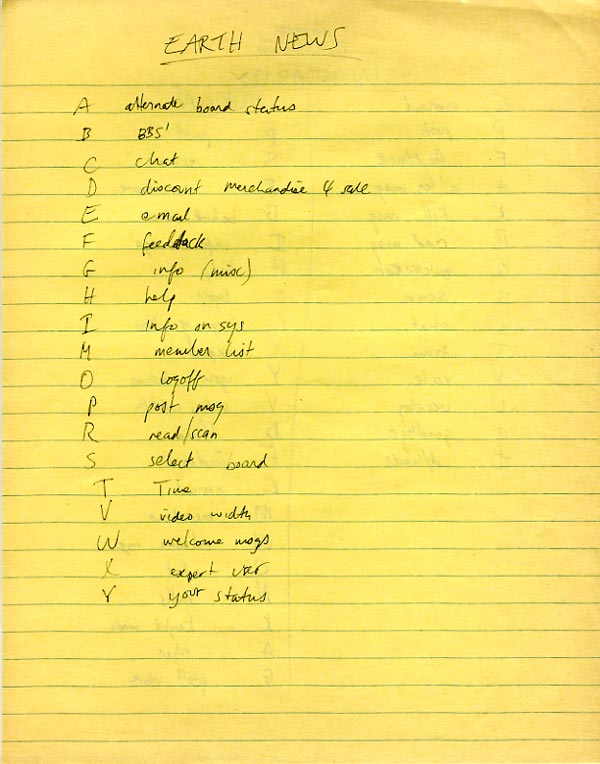 EARTH NEWS
A alternate board status
B BBS'
C chat
D discount merchandise 4 sale
E email
F feedback
G info (misc)
H help
I info on sys
M member list
O logoff
P post msg
R read/scan
S select board
T Time
V video width
W welcome msgs
X expert user
Y your status